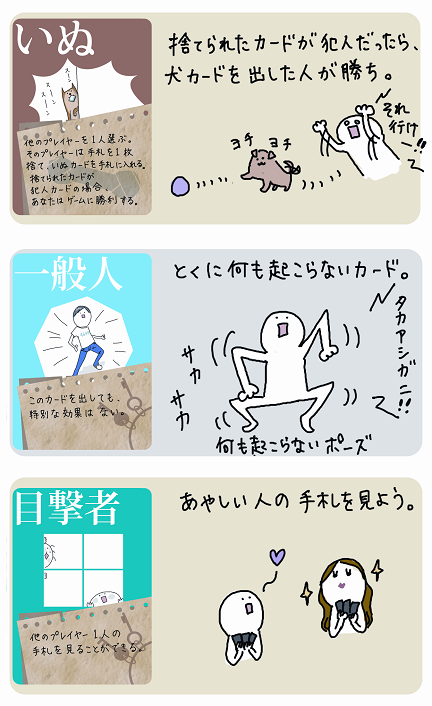 いぬ
スーン
スーン
他のプレイヤーを1人選ぶ。
そのプレイヤーは手札を1枚
捨て、いぬカードを手札に入れる。
捨てられたカードが
犯人カードの場合、
あなたはゲームに勝利する。
捨てられたカードが犯人だったら、
犬カードを出した人が勝ち。
ヨチ ヨチ
それ
行け
ー!!
一般人
このカードを出しても、
特別な効果はない。
とくに何も起こらないカード。
サカ
サカ
タカアシガニ!!
何も起こらないポーズ
目撃者
他のプレイヤー1人の
手札を見ることができる。
あやしい人の手札を見よう。